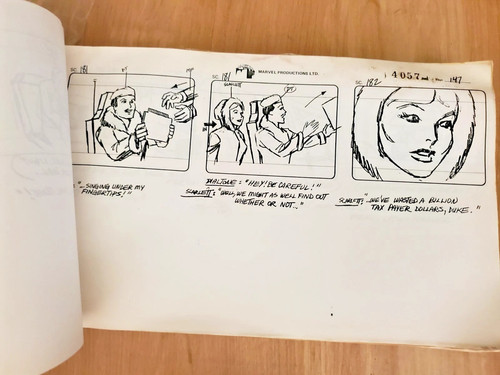 SC. 181
SC. 181
SCARLETT
MARVEL PRODUCTIONS LTD.
4057
147
SC. 182
: "...SINGING UNDER MY
FINGERTIPS!"
: "HEY! BE CAREFUL!"
SCARLETT: "WELL, WE MIGHT AS WELL FIND OUT
WHETHER OR NOT.."
SCARLETT: "..WE'VE WASTED A BILLION
TAX PAYER DOLLARS, DUKE."